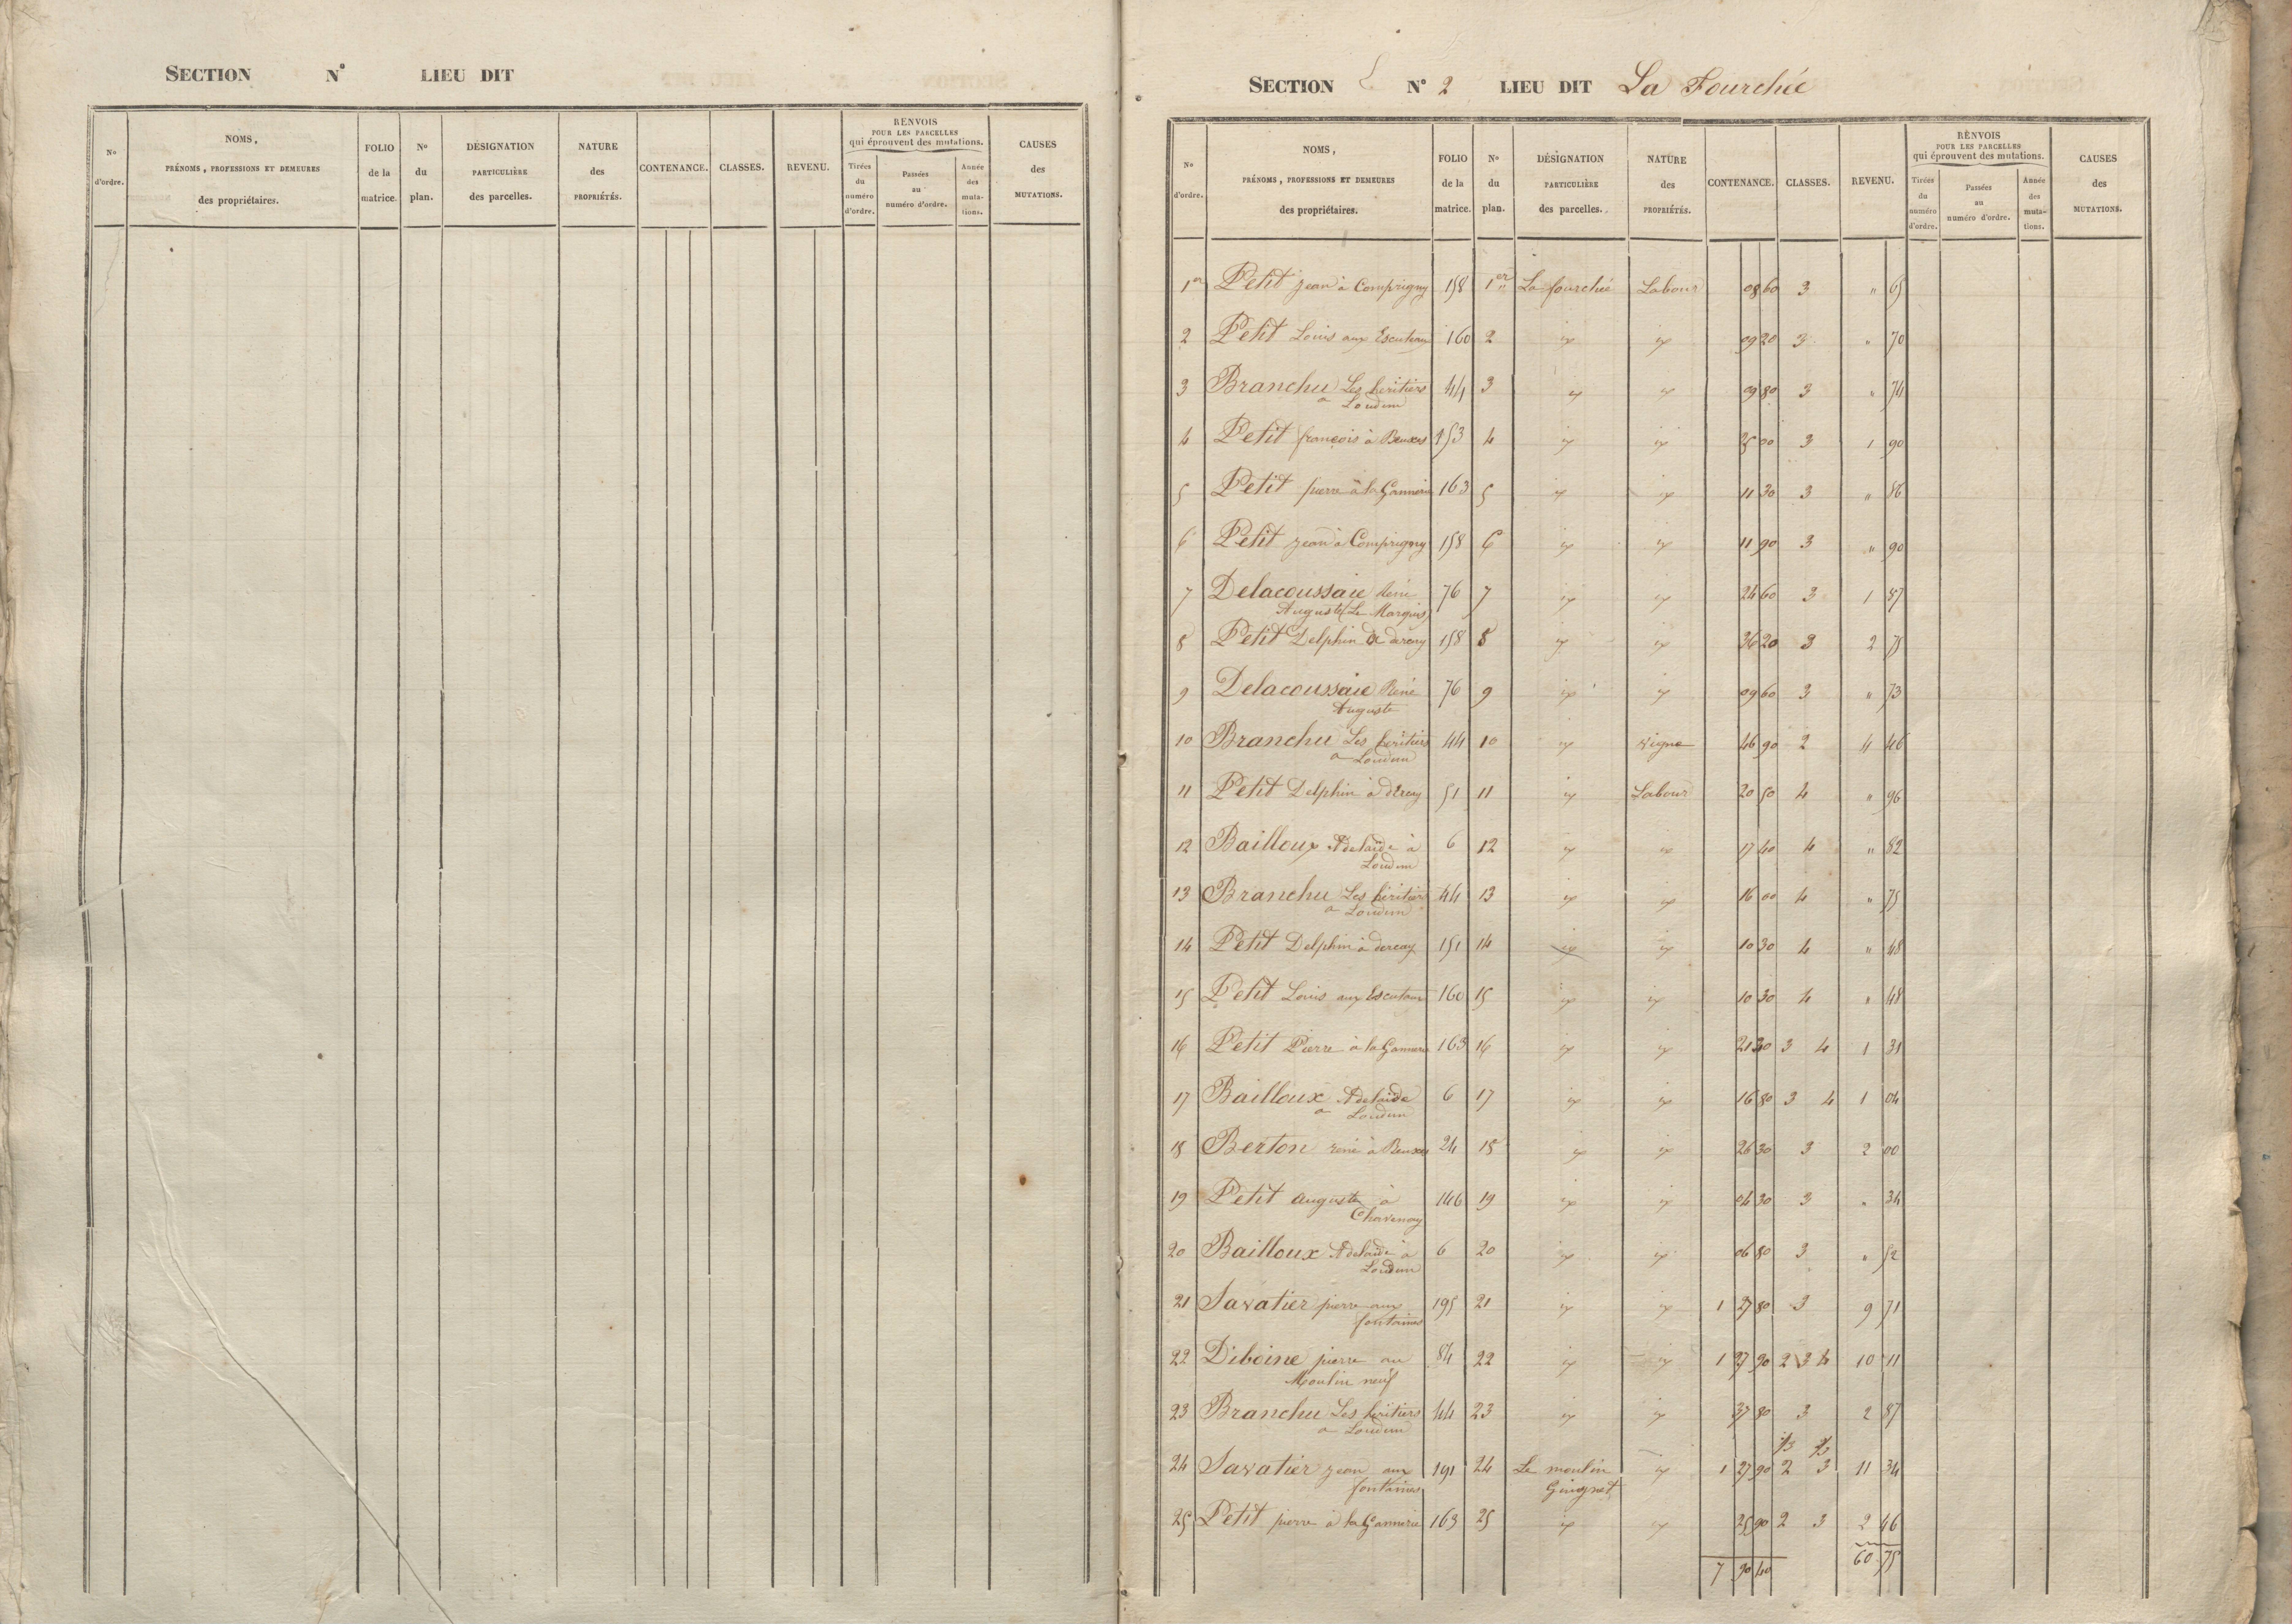 SECTION N° LIEU DIT
N° d'ordre. NOMS, PRÉNOMS, PROFESSIONS ET DEMEURES des propriétaires. FOLIO de la matrice. N° du plan. DÉSIGNATION PARTICULIÈRE des parcelles. NATURE des PROPRIÉTÉS. CONTENANCE. CLASSES. REVENU. RENVOIS POUR LES PARCELLES qui éprouvent des mutations. Tirées du numéro d'ordre. Passées au numéro d'ordre. Année des mutations. CAUSES des MUTATIONS.
SECTION N° 2 LIEU DIT La Fourchée
N° d'ordre. NOMS, PRÉNOMS, PROFESSIONS ET DEMEURES des propriétaires. FOLIO de la matrice. N° du plan. DÉSIGNATION PARTICULIÈRE des parcelles. NATURE des PROPRIÉTÉS. CONTENANCE. CLASSES. REVENU. RENVOIS POUR LES PARCELLES qui éprouvent des mutations. Tirées du numéro d'ordre. Passées au numéro d'ordre. Année des mutations. CAUSES des MUTATIONS.
1er Petit jean à Comprigny 158 1er La fourchée Labour 08 60 3 " 65
2 Petit Louis aux Escuteaux 160 2 id id 09 20 3 " 70
3 Branchu Les héritiers 44 3 id id 09 80 3 " 74
a Loudun
4 Petit françois à Beuxes 153 4 id id 25 00 3 1 90
5 Petit pierre à la Gannerie 163 5 id id 11 30 3 " 86
6 Petit jean à Comprigny 158 6 id id 11 90 3 " 90
7 Delacoussaie René 76 7 id id 24 60 3 1 87
Auguste (Le Marquis)
8 Petit Delphin à dercay 158 8 id id 36 20 3 2 75
9 Delacoussaie René 76 9 id id 09 60 3 " 73
Auguste
10 Branchu Les héritiers 44 10 id vigne 46 90 2 4 46
a Loudun
11 Petit Delphin à dercay 51 11 id Labour 20 50 4 " 96
12 Bailloux Adelaïde à 6 12 id id 17 40 4 " 82
Loudun
13 Branchu Les héritiers 44 13 id id 16 00 4 " 75
a Loudun
14 Petit Delphin à dercay 151 14 id id 10 30 4 " 48
15 Petit Louis aux Escuteaux 160 15 id id 10 30 4 " 48
16 Petit Pierre à la Gannerie 163 16 id id 21 30 3 4 1 31
17 Bailloux Adelaïde 6 17 id id 16 80 3 4 1 04
a Loudun
18 Berton rené à Beuxes 24 18 id id 26 30 3 2 00
19 Petit auguste à 146 19 id id 04 30 3 " 34
Chavenay
20 Bailloux Adelaïde à 6 20 id id 06 80 3 " 52
Loudun
21 Savatier pierre aux 195 21 id id 1 27 80 3 9 71
fontaines
22 Diboine pierre au 84 22 id id 1 27 90 2 3 4 10 11
Moulin neuf
23 Branchu Les héritiers 44 23 id id 37 80 3 2 87
a Loudun
24 Savatier jean aux 191 24 Le moulin id 1 27 90 2 3 11 34
fontaines Guignet
25 Petit pierre à la Gannerie 163 25 id id 25 90 2 3 2 46
7 90 40 60 75